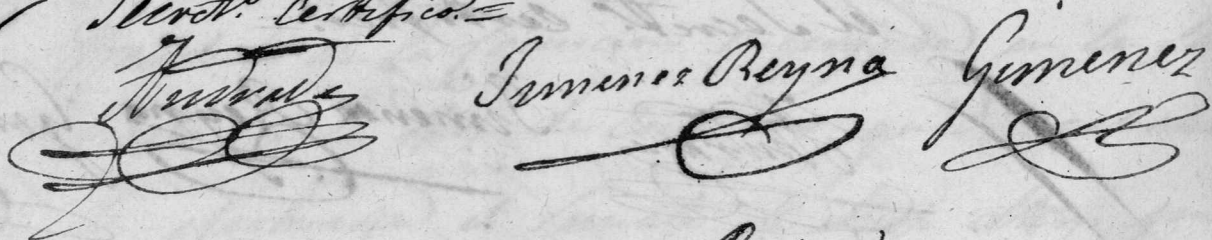 Secret.º Certifico.=
Andrade Jimenez Reyna Gimenez